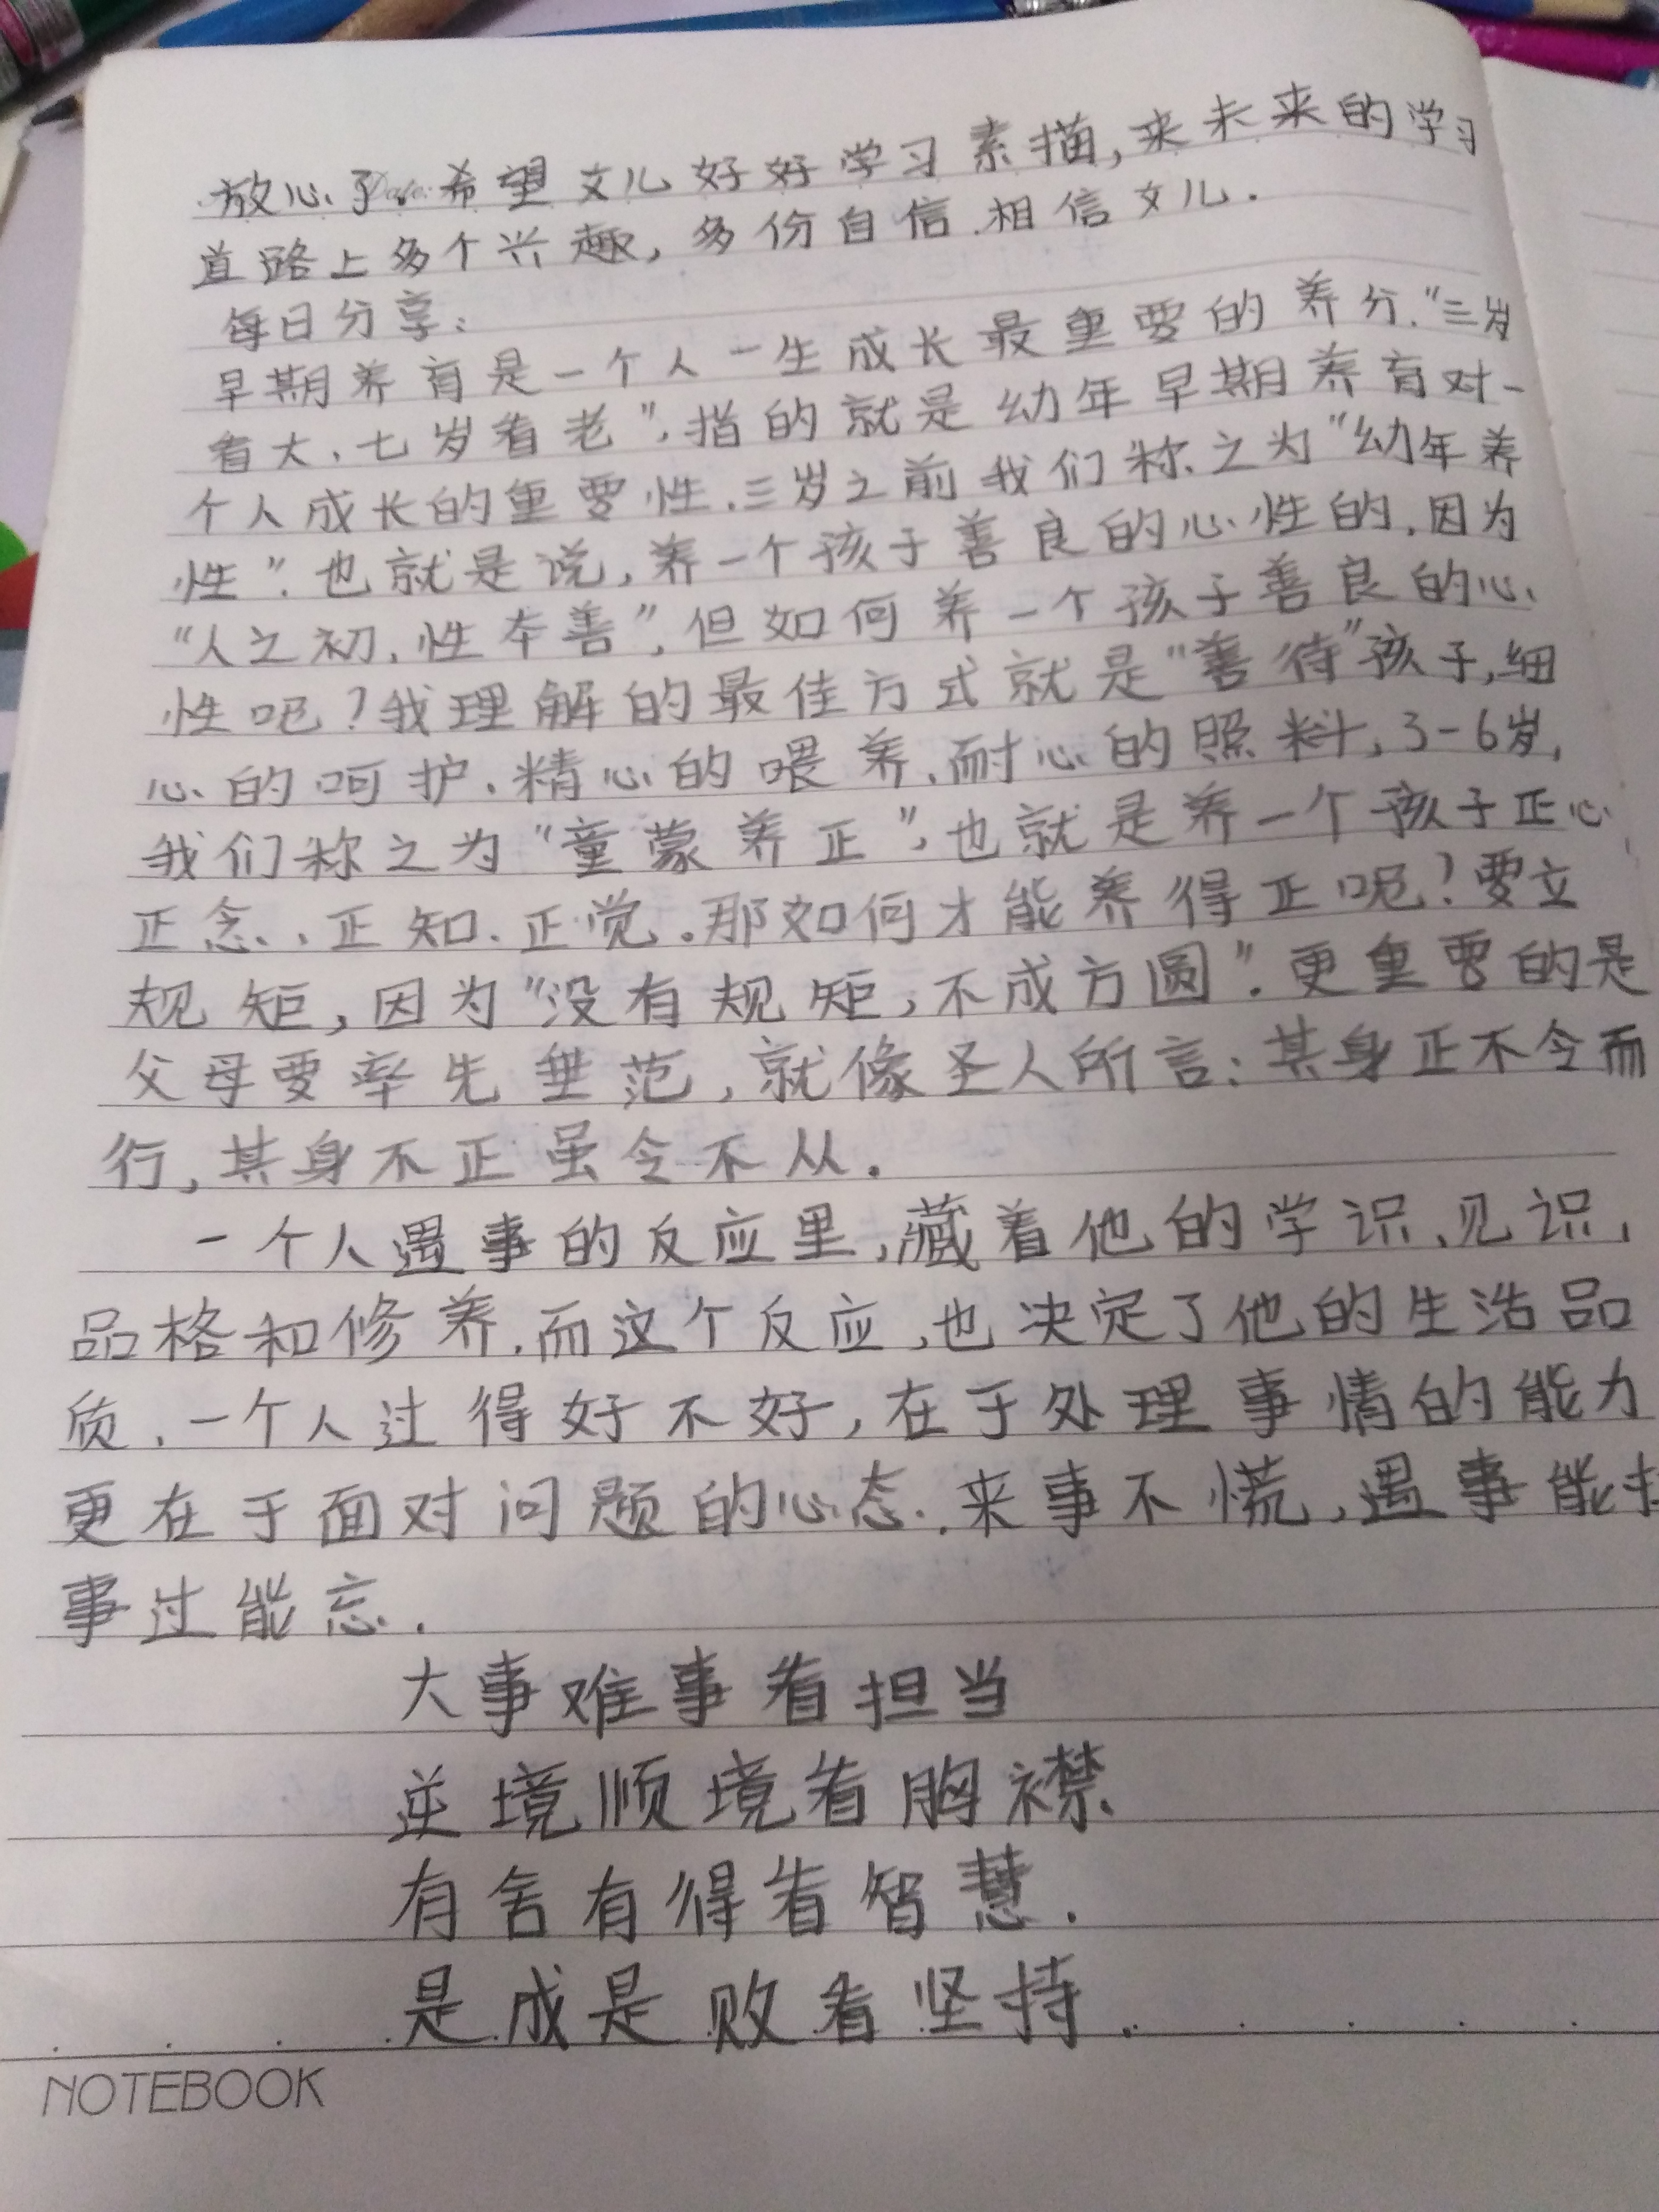 放心了。希望文儿好好学习素描,来未来的学习
道路上多个兴趣,多份自信.相信文儿.
每日分享:
早期养育是一个人一生成长最重要的养分."三岁
看大、七岁看老",指的就是幼年早期养育对一
个人成长的重要性.三岁之前我们称之为"幼年养
性".也就是说,养一个孩子善良的心性的,因为
"人之初,性本善",但如何养一个孩子善良的心
性呢?我理解的最佳方式就是"善待"孩子,细
心的呵护.精心的喂养、耐心的照料,3-6岁,
我们称之为"童蒙养正",也就是养一个孩子正心
正念、正知、正觉。那如何才能养得正呢?要立
规矩,因为"没有规矩,不成方圆".更重要的是
父母要率先垂范,就像圣人所言:其身正不令而
行,其身不正虽令不从.
一个人遇事的反应里,藏着他的学识、见识,
品格和修养.而这个反应,也决定了他的生活品
质.一个人过得好不好,在于处理事情的能力
更在于面对问题的心态.来事不慌,遇事能
事过能忘.
大事难事看担当
逆境顺境看胸襟
有舍有得看智慧.
是成是败看坚持.
NOTEBOOK